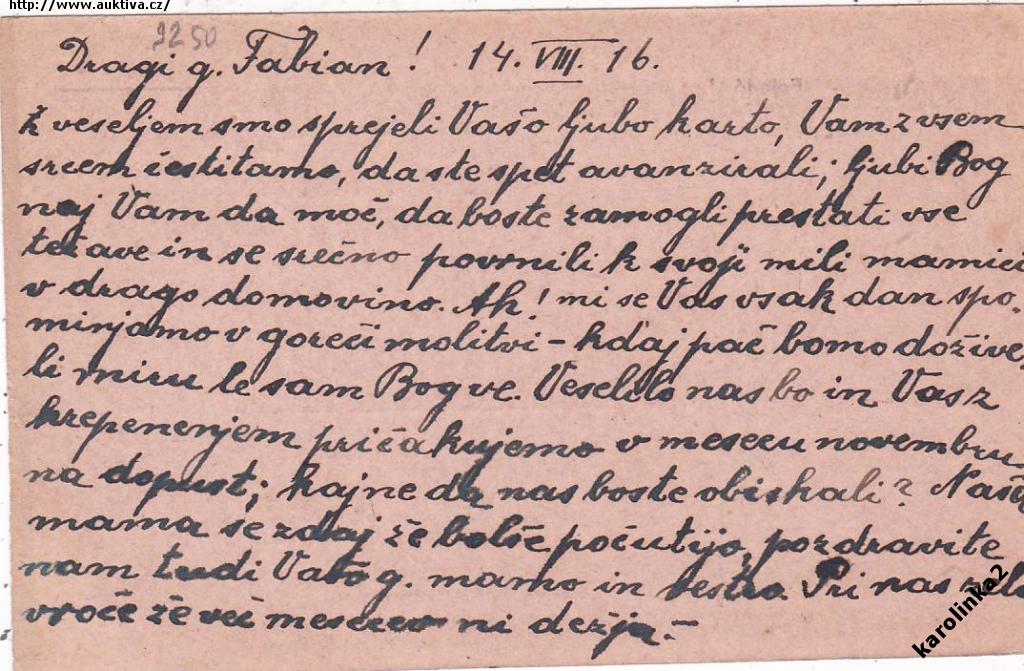 http://www.auktiva.cz/
2250
Dragi g. Fabian! 14. VIII. 16.
Z veseljem smo sprejeli Vašo ljubo karto, Vam z vsem
srcem čestitamo, da ste spet avanzirali; ljubi Bog
naj Vam da moč, da boste zamogli prestati vse
težave in se srečno povrnili k svoji mili mamici
v drago domovino. Ah! mi se Vas vsak dan spo-
minjamo v goreči molitvi - kdaj pač bomo dožive-
li miru le sam Bog ve. Veselilo nas bo in Vas z
hrepenenjem pričakujemo v mesecu novembru
na dopust; kajne da nas boste obiskali? Naša
mama se zdaj že bolše počutijo, pozdravite
nam tudi Vašo g. mamo in sestro. Pri nas zelo
vroče že več mesecev ni dežja.-
karolinka2